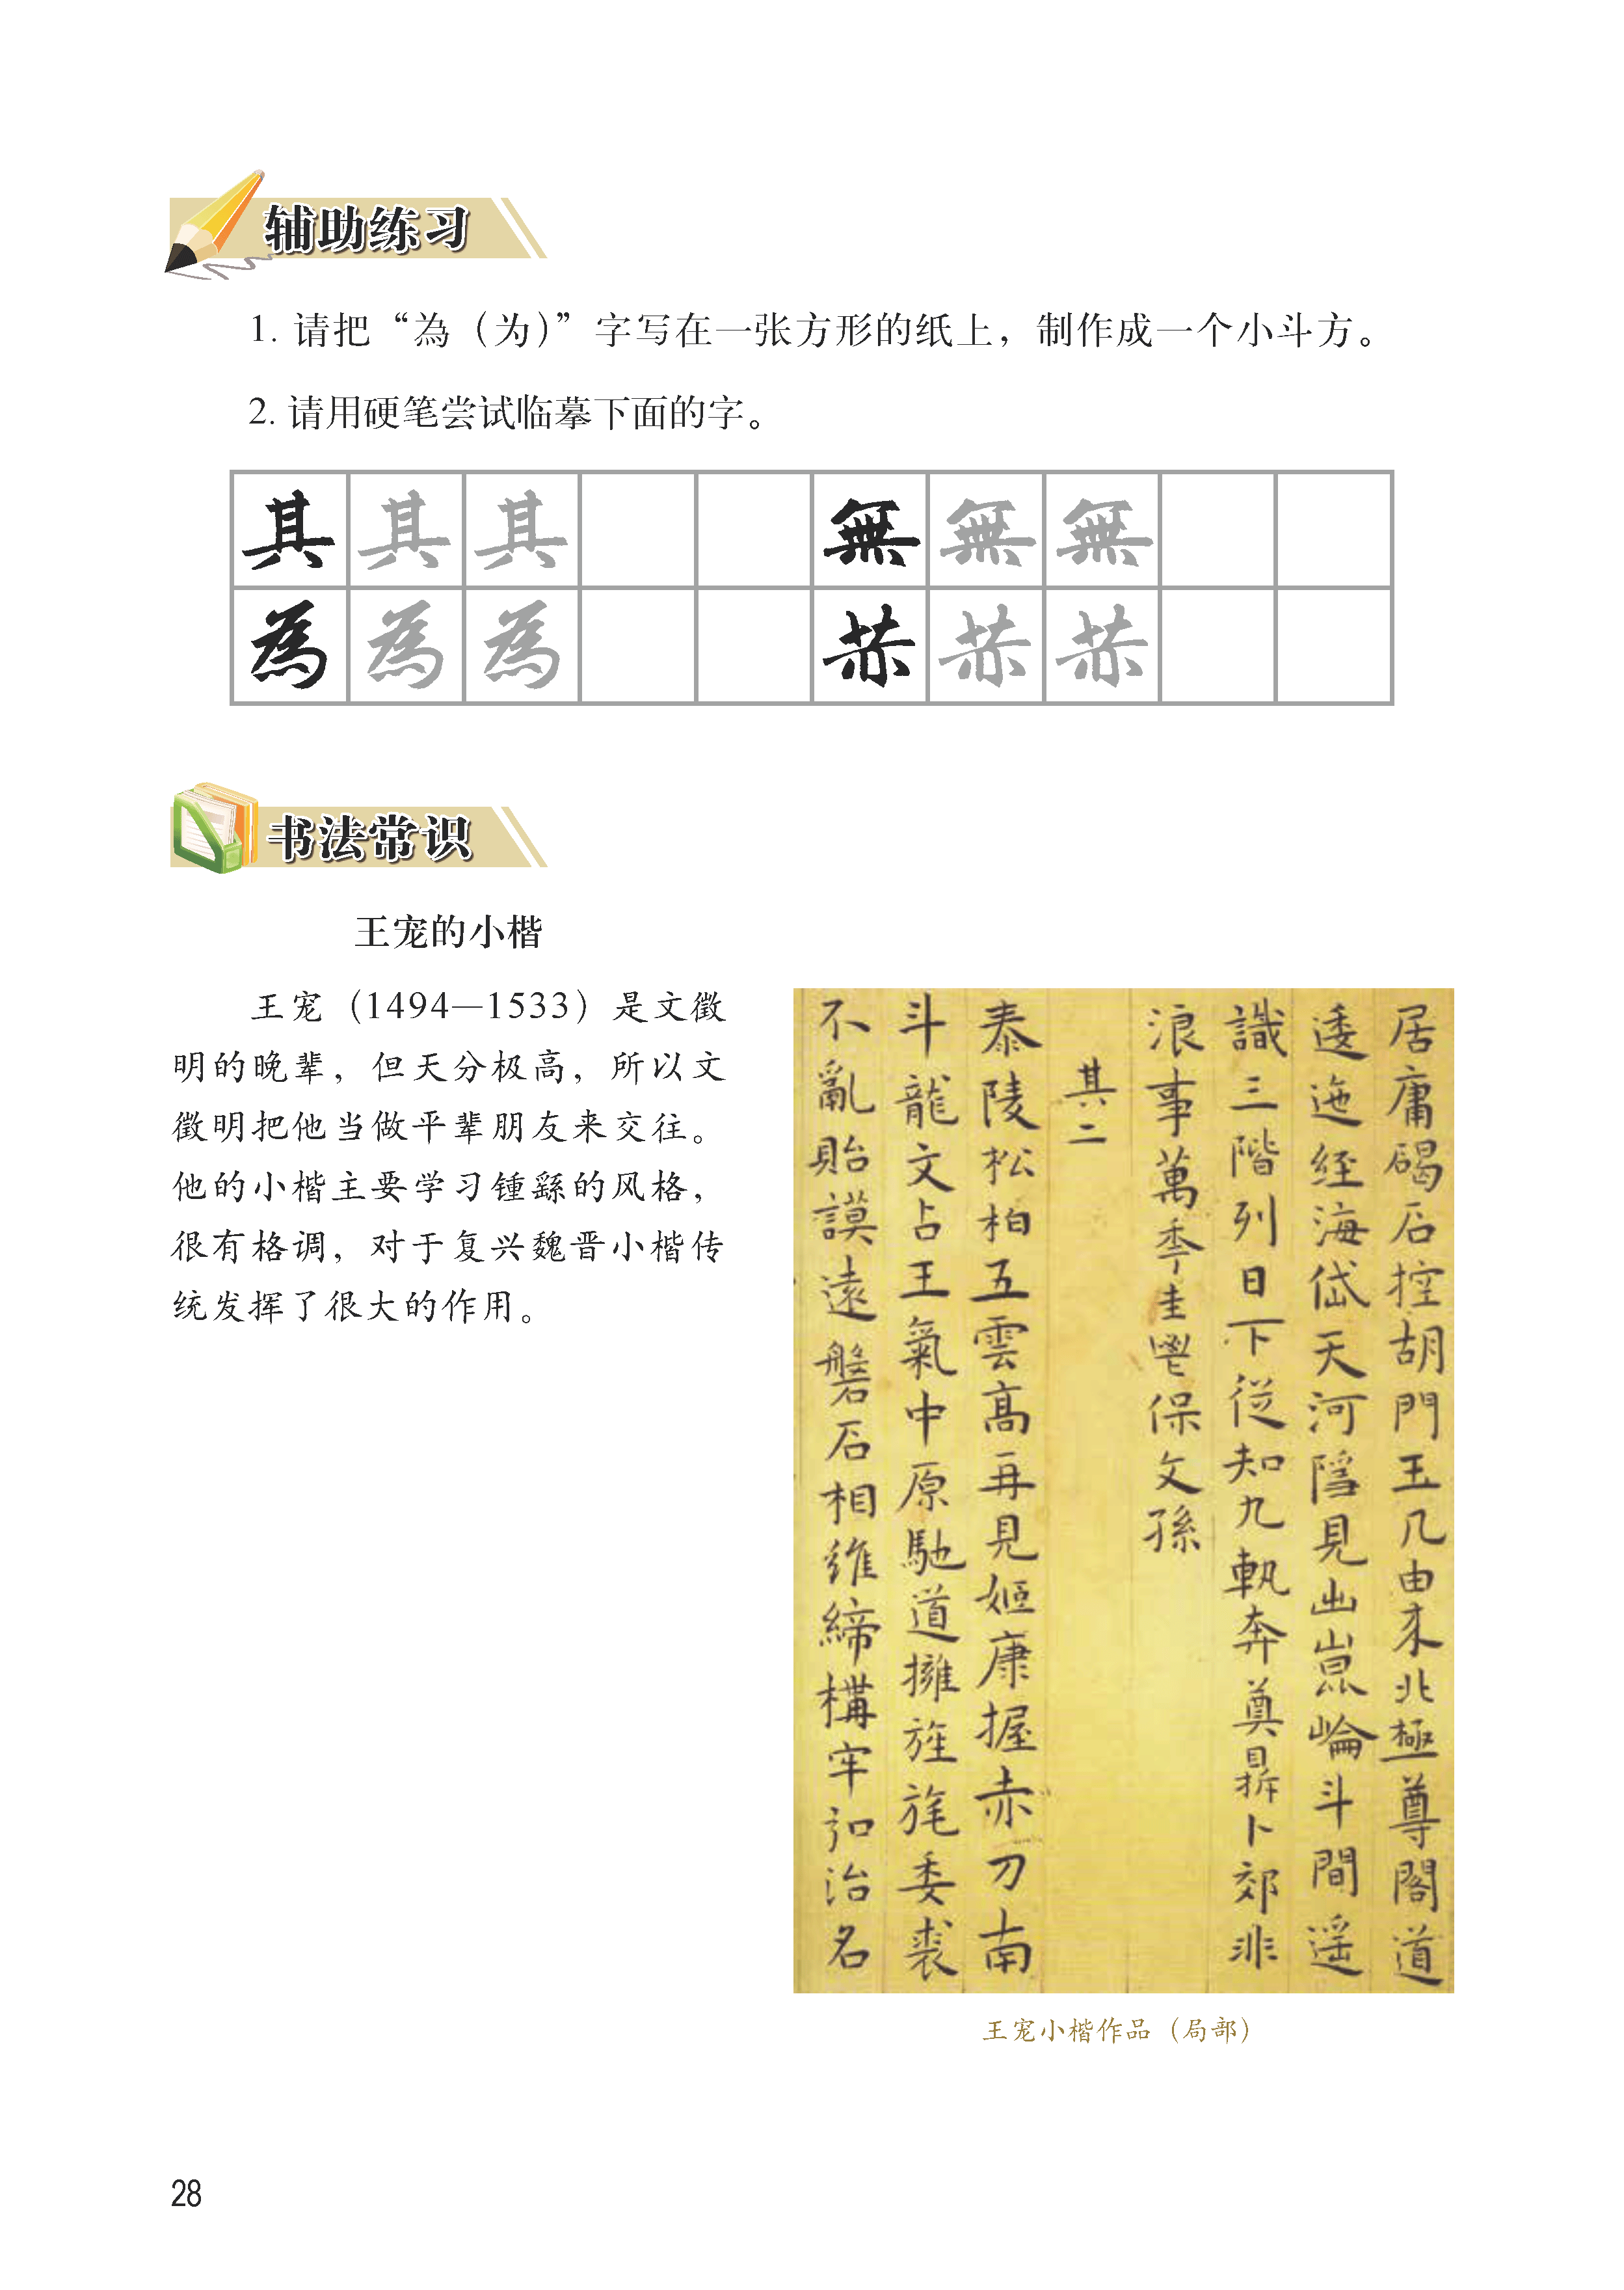 辅助练习
1. 请把“為（为）”字写在一张方形的纸上，制作成一个小斗方。
2. 请用硬笔尝试临摹下面的字。
其 其 其 無 無 無
為 為 為 恭 恭 恭
书法常识
王宠的小楷
王宠（1494—1533）是文徵
明的晚辈，但天分极高，所以文
徵明把他当做平辈朋友来交往。
他的小楷主要学习锺繇的风格，
很有格调，对于复兴魏晋小楷传
统发挥了很大的作用。
居庸碣石控胡門玉几由来北極尊閣道
逶迤經海岱天河隱見出崑崙斗間遥
識三階列日下從知九軌奔奠鼎卜郊非
浪事萬季圭鬯保文孫
其二
泰陵松柏五雲高再見姬康握赤刀南
斗龍文占王氣中原馳道擁旌旄委裘
不亂貽謨遠磐石相維締構牢弘治名
王宠小楷作品（局部）
28